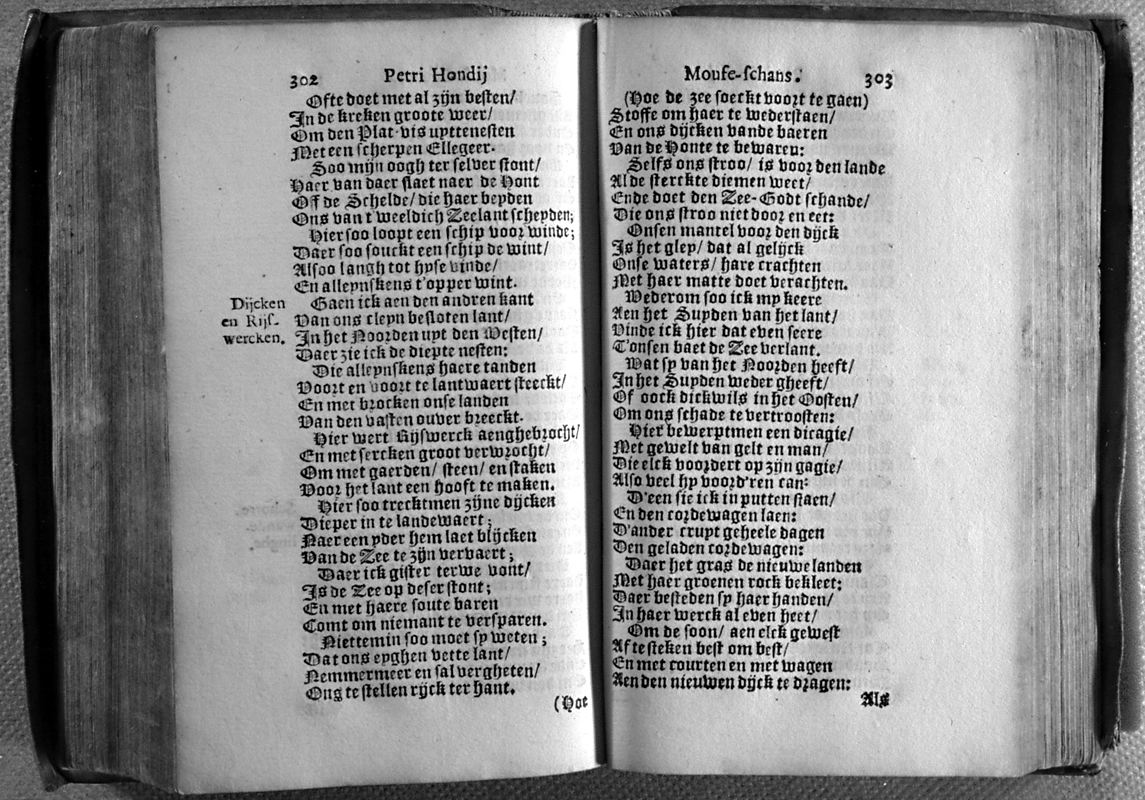 302 Petri Hondij
Ofte doet met al zijn besten/
In de kreken groote weer/
Om den Plat-vis uyttenesten
Met een scherpen Ellegeer.
Soo mijn oogh ter selver stont/
Haer van daer slaet naer de Hont
Of de Schelde/ die haer beyden
Ons van t'weeldich Zeelant scheyden;
Hier soo loopt een schip voor winde;
Daer soo souckt een schip de wint/
Alsoo langh tot hyse vinde/
En alleynskens t'opper wint.
Dijcken
en Rijs-
wercken.
Gaen ick aen den andren kant
Van ons cleyn besloten lant/
In het Noorden uyt den Westen/
Daer zie ick de diepte nesten:
Die alleynskens haere tanden
Voort en voort te lantwaert steeckt/
En met brocken onse landen
Van den vasten ouver breeckt.
Hier wert Rijswerck aenghebrocht/
En met sercken groot verwrocht/
Om met gaerden/ steen/ en staken
Voor het lant een hooft te maken.
Hier soo trecktmen zijne dijcken
Dieper in te landewaert;
Naer een yder hem laet blijcken
Van de Zee te zijn vervaert;
Daer ick gister terwe vont/
Is de Zee op deser stont;
En met haere soute baren
Comt om niemant te versparen.
Niettemin soo moet sy weten;
Dat ons eyghen vette lant/
Nemmermeer en sal vergheten/
Ons te stellen rijck ter hant.
(Hoe
Moufe-schans. 303
(Hoe de zee soeckt voort te gaen)
Stoffe om haer te wederstaen/
En ons dijcken vande baeren
Van de Honte te bewaren:
Selfs ons stroo/ is voor den lande
Al de sterckte diemen weet/
Ende doet den Zee-Godt schande/
Die ons stroo niet door en eet:
Onsen mantel voor den dijck
Is het gley/ dat al gelijck
Onse waters/ hare crachten
Met haer matte doet verachten.
Wederom soo ick my keere
Aen het Suyden van het lant/
Vinde ick hier dat even seere
T'onsen baet de Zee verlant.
Wat sy van het Noorden heeft/
In het Suyden weder gheeft/
Of oock dickwils in het Oosten/
Om ons schade te vertroosten:
Hier bewerptmen een dicagie/
Met gewelt van gelt en man/
Die elck voordert op zijn gagie/
Also veel hy voord'ren can:
D'een sie ick in putten staen/
En den cordewagen laen:
D'ander crupt geheele dagen
Den geladen cordewagen:
Daer het gras de nieuwe landen
Met haer groenen rock bekleet:
Daer besteden sy haer handen/
In haer werck al even heet/
Om de soon/ aen elck gewest
Af te steken best om best/
En met courten en met wagen
Aen den nieuwen dijck te dragen:
Als